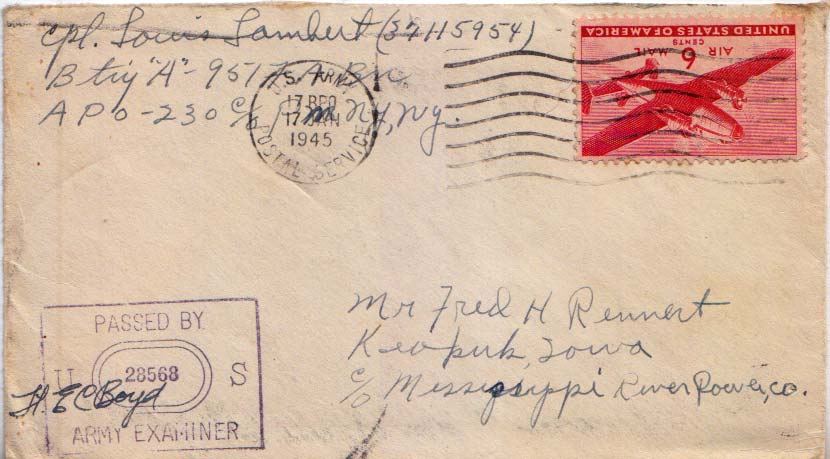 Cpl. Louis Lambert (37115954)
Btry "A" - 951 F.A. Bn
APO - 230 c/o P.M. N.Y., Ny.
U.S. ARMY
17 BPO
17 JAN
1945
POSTAL SERVICE
UNITED STATES OF AMERICA
CENTS
6
AIR MAIL
Mr Fred H Rennert
Keokuk, Iowa
c/o Mississippi River Power, co.
PASSED BY
U 28568 S
H. E C Boyd
ARMY EXAMINER